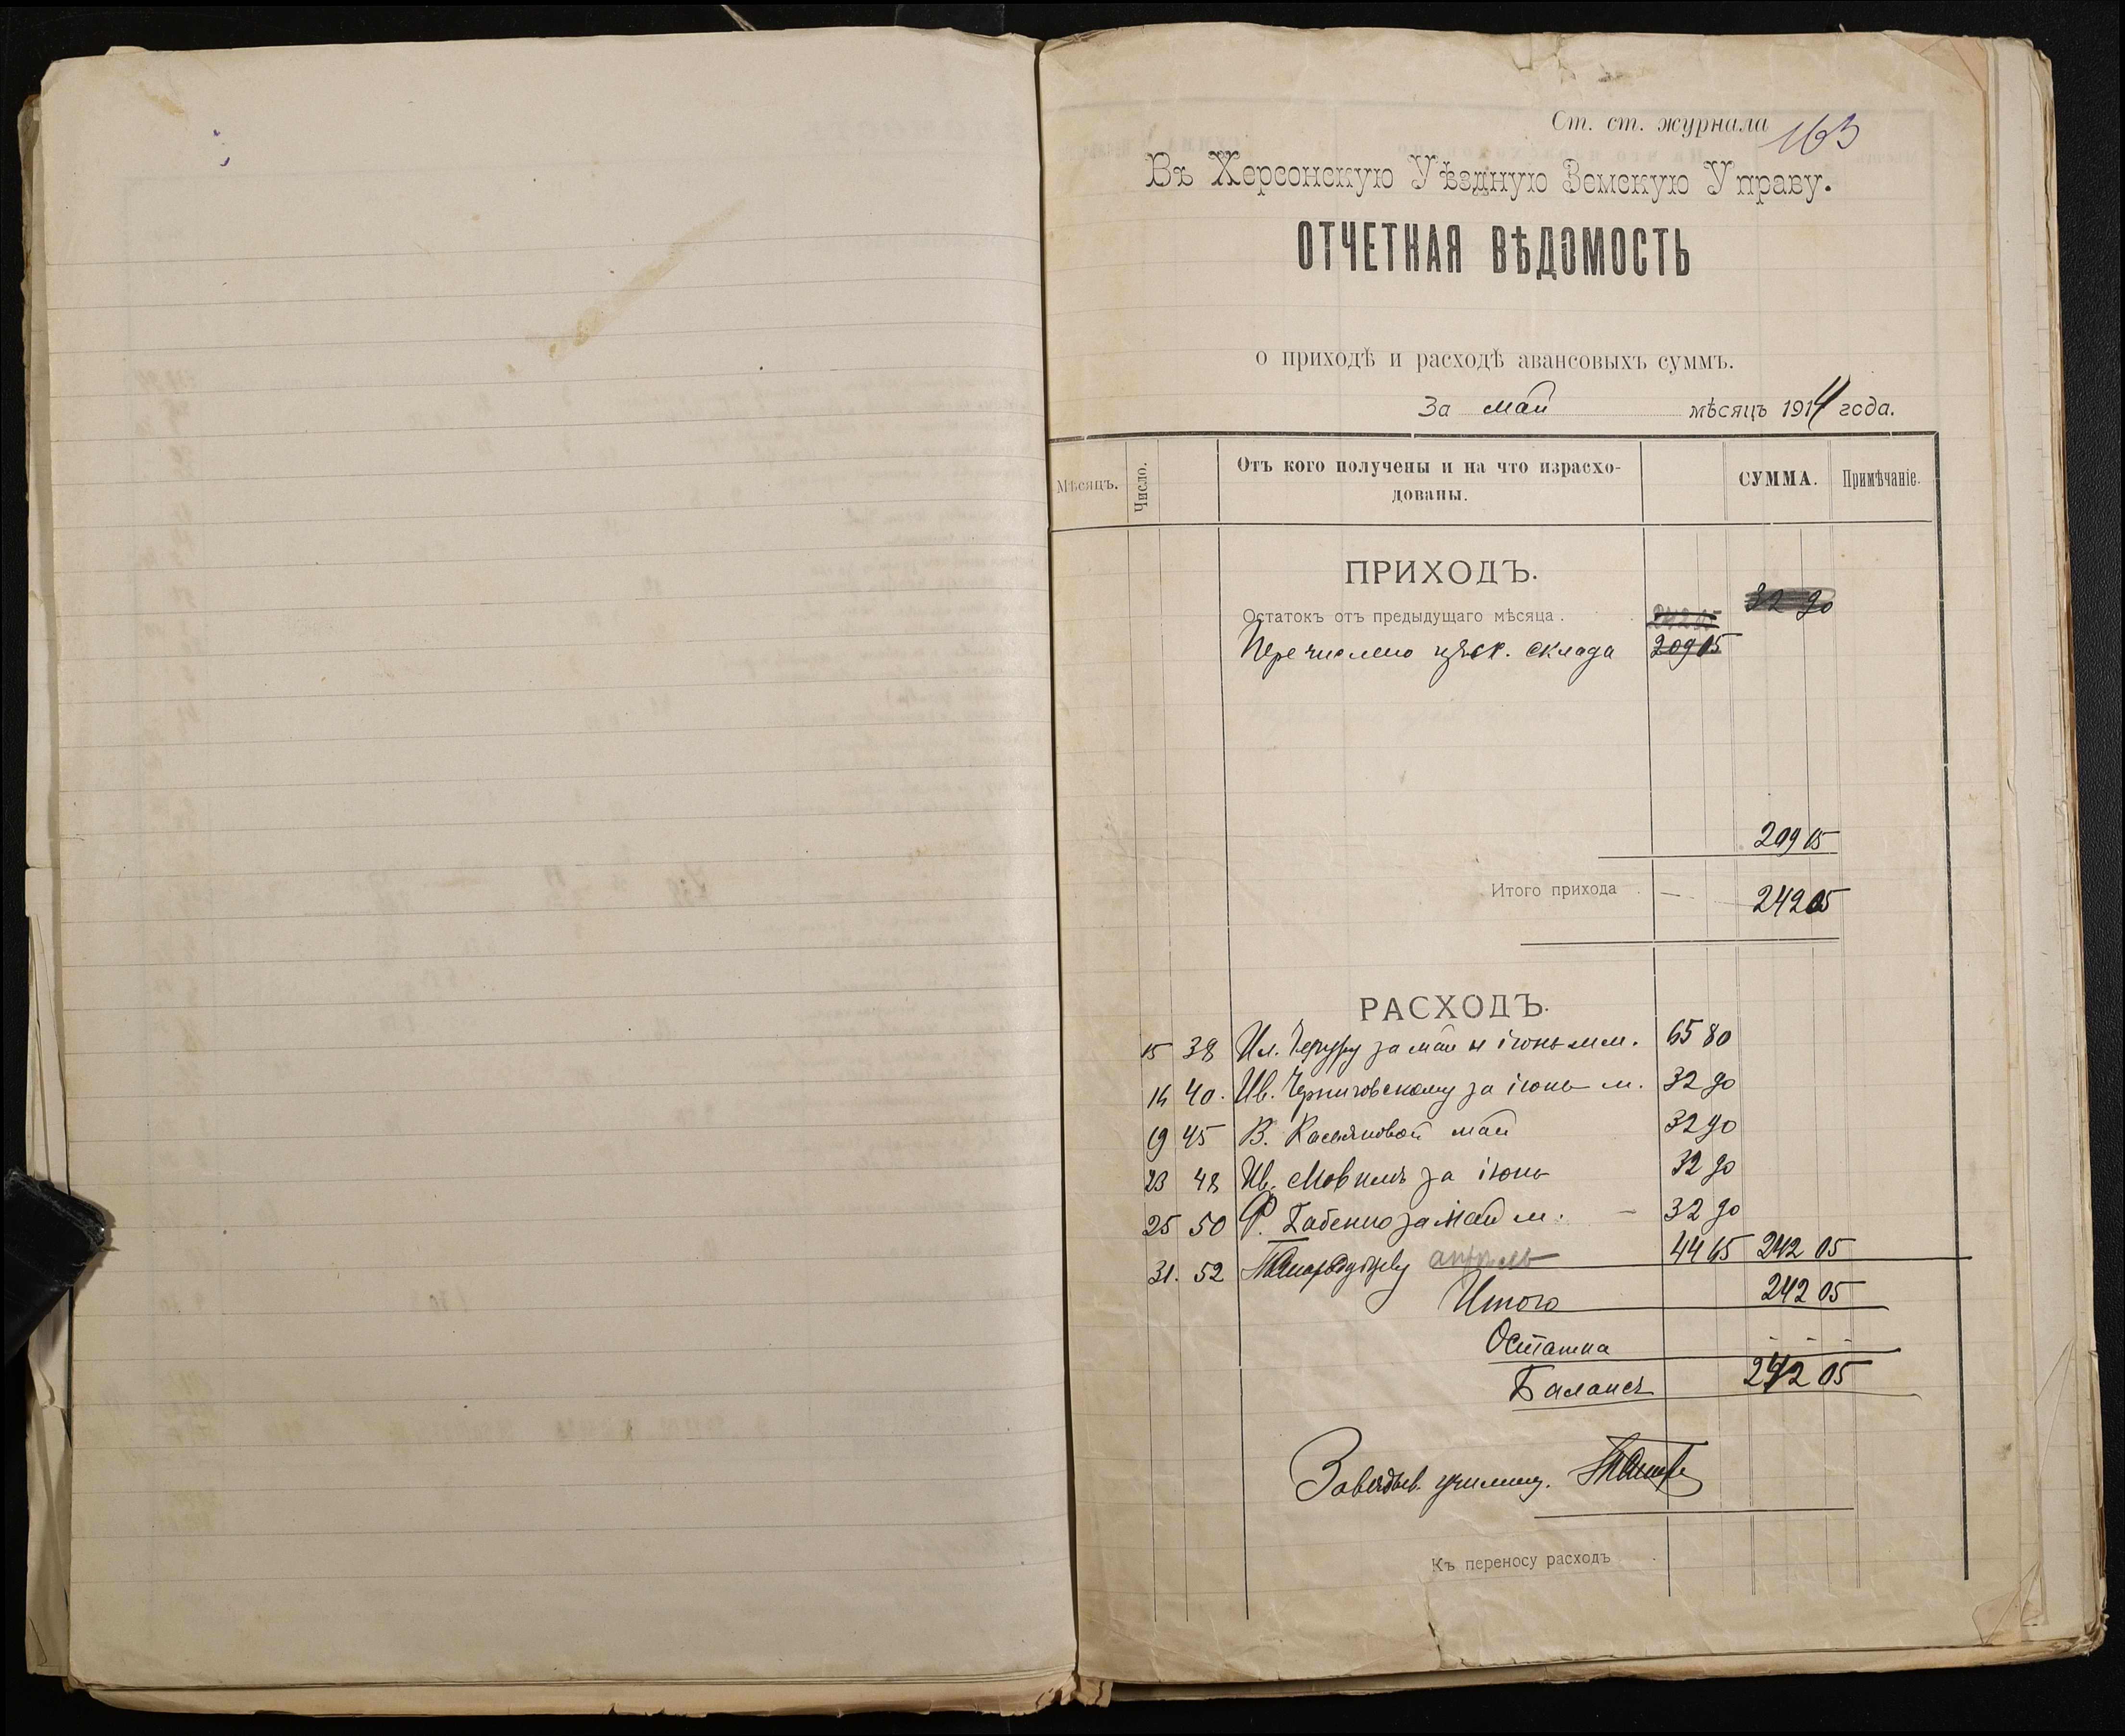 Ст. ст. журнала 163
Въ Херсонскую Уѣздную Земскую Управу.
ОТЧЕТНАЯ ВѢДОМОСТЬ
о приходѣ и расходѣ авансовыхъ суммъ.
За май мѣсяцъ 1914 года.
Мѣсяцъ. Число. Отъ кого получены и на что израсхо-
дованы. СУММА. Примѣчаніе.
ПРИХОДЪ.
32 90
Остатокъ отъ предыдущаго мѣсяца . 242 05
Перечислено склада 209 15
209 15
Итого прихода . — 242 05
РАСХОДЪ.
15 38 Ил. за май и іюнь мм. 65 80
16 40. Ив. Черниговскому за іюнь м. 32 90
19 45 В. Касьяновой май 32 90
23 48 Ив. за іюнь 32 90
25 50 Р. Бабенко за май м. — 32 90
31. 52 апрель 44 65 242 05
Итого 242 05
Остатка - - -
Балансъ 242 05
Завѣдыв. училищ.
Къ переносу расходъ .